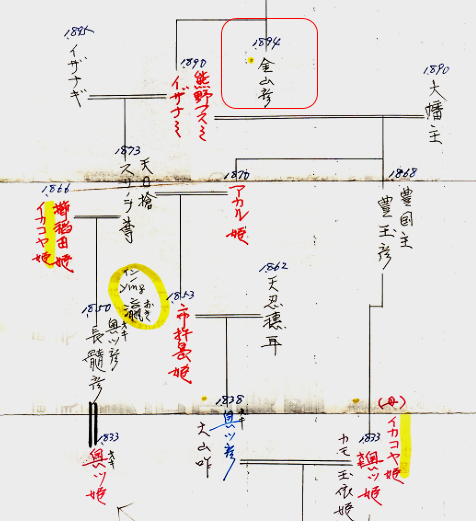 1895
イザナギ
1890
熊野フスミ
イザナミ
1894
金山彦
1890
大幡主
1873
スサノヲ尊
天日槍
1870
アカル姫
1868
豊国主
豊玉彦
1866
櫛稲田姫
イカコヤ姫
1853
市杵島姫
1862
天忍穂耳
1850
奥ツ彦
長髄彦
1833
奥ツ姫
1838
奥ツ彦
大山咋
(母)
イカコヤ姫
1833
奥ツ姫
カモ玉依姫